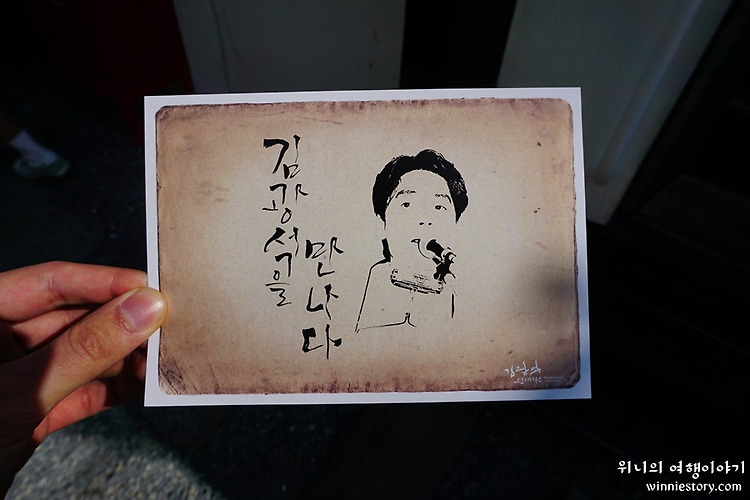 김광석을
만나다
김광석
위니의 여행이야기
winniestory.com